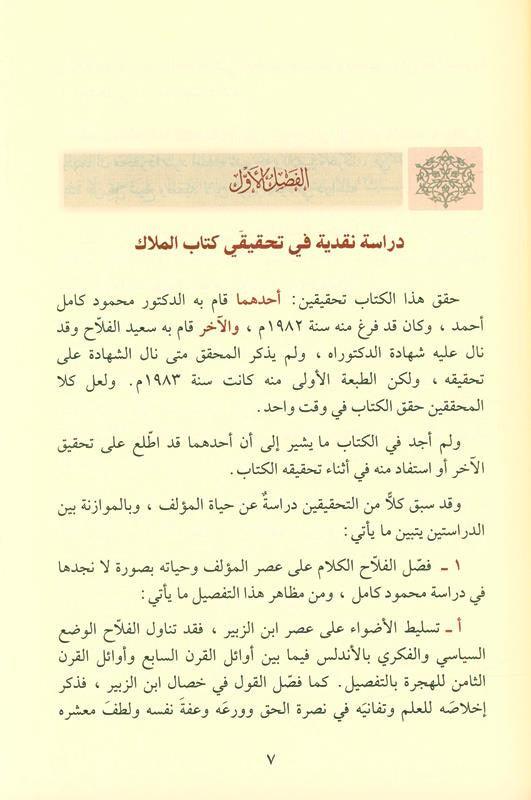 الفَصْلُ الأَوَّلُ
دراسة نقدية في تحقيقَي كتاب الملاك
حقق هذا الكتاب تحقيقين: أحدهما قام به الدكتور محمود كامل
أحمد ، وكان قد فرغ منه سنة ١٩٨٢م ، والآخر قام به سعيد الفلاّح وقد
نال عليه شهادة الدكتوراه ، ولم يذكر المحقق متى نال الشهادة على
تحقيقه ، ولكن الطبعة الأولى منه كانت سنة ١٩٨٣م. ولعل كلا
المحققين حقق الكتاب في وقت واحد.
ولم أجد في الكتاب ما يشير إلى أن أحدهما قد اطّلع على تحقيق
الآخر أو استفاد منه في أثناء تحقيقه الكتاب.
وقد سبق كلاًّ من التحقيقين دراسةٌ عن حياة المؤلف ، وبالموازنة بين
الدراستين يتبين ما يأتي:
١ ـ فصّل الفلاّح الكلام على عصر المؤلف وحياته بصورة لا نجدها
في دراسة محمود كامل ، ومن مظاهر هذا التفصيل ما يأتي:
أ ـ تسليط الأضواء على عصر ابن الزبير ، فقد تناول الفلاّح الوضع
السياسي والفكري بالأندلس فيما بين أوائل القرن السابع وأوائل القرن
الثامن للهجرة بالتفصيل. كما فصّل القول في خصال ابن الزبير ، فذكر
إخلاصَه للعلم وتفانيَه في نصرة الحق وورعَه وعفةَ نفسه ولطفَ معشره
٧